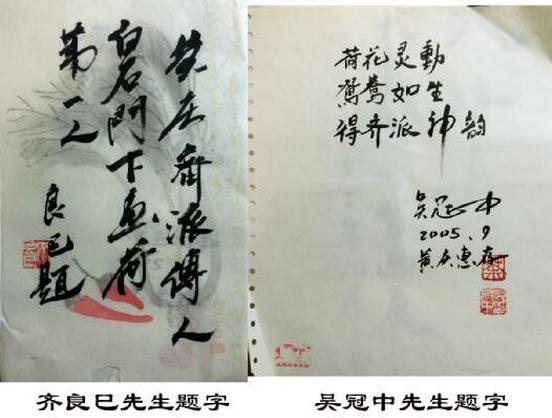 黄庆齊派傳人
白石門下画荷
第一人
良已題
荷花灵動
鴛鴦如生
得齐派神韵
吴冠中
2005.9
黄庆惠存
齐良巳先生题字
吴冠中先生题字